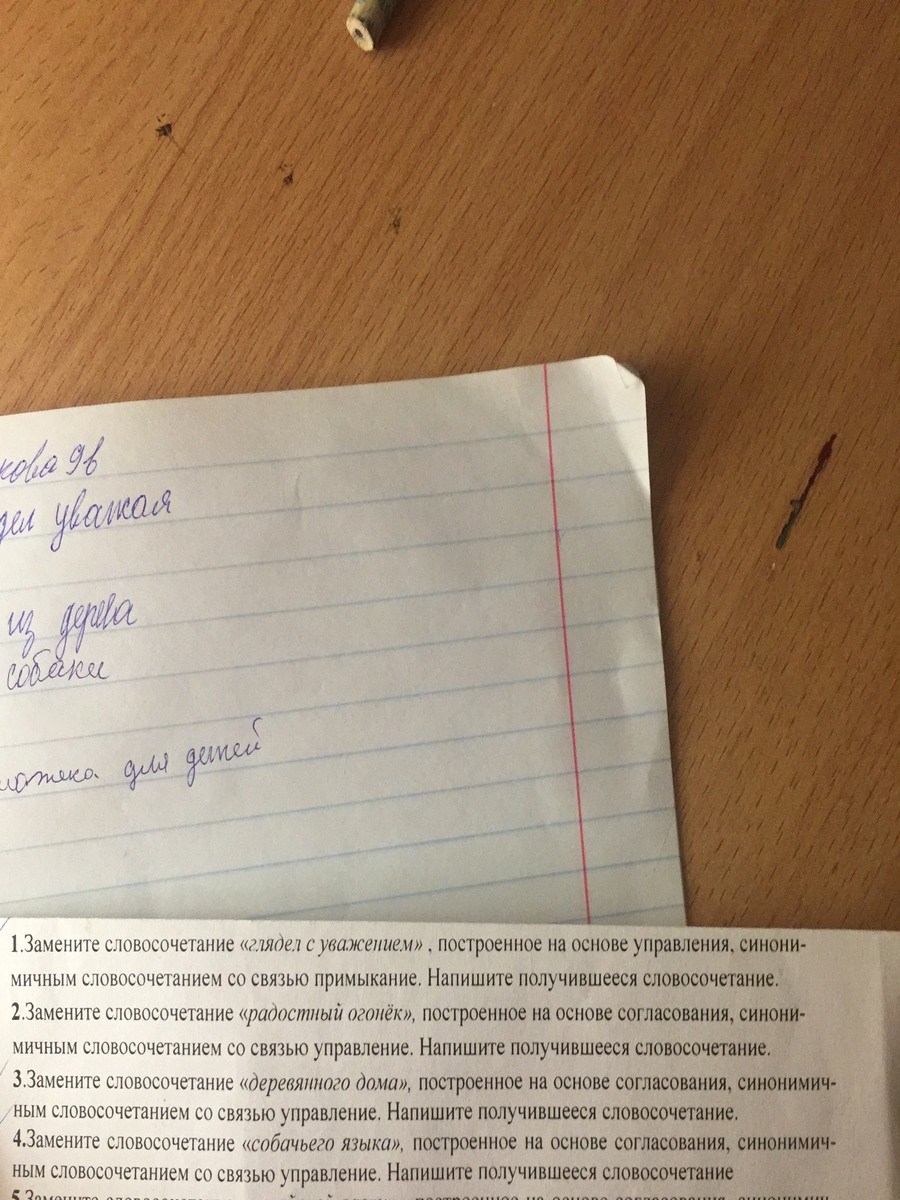 кова 9в
дел уважая
из дерева
собаки
для детей
1.Замените словосочетание «глядел с уважением» , построенное на основе управления, синони-
мичным словосочетанием со связью примыкание. Напишите получившееся словосочетание.
2.Замените словосочетание «радостный огонёк», построенное на основе согласования, синони-
мичным словосочетанием со связью управление. Напишите получившееся словосочетание.
3.Замените словосочетание «деревянного дома», построенное на основе согласования, синонимич-
ным словосочетанием со связью управление. Напишите получившееся словосочетание.
4.Замените словосочетание «собачьего языка», построенное на основе согласования, синонимич-
ным словосочетанием со связью управление. Напишите получившееся словосочетание